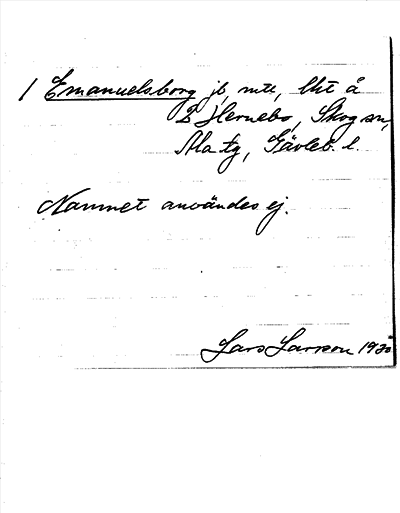 1 Emanuelsborg jb, mtl, lht å
2 Hernebo, Skog sn,
Ala tg, Gävleb. l.
Namnet användes ej.
Lars Larsson 1930